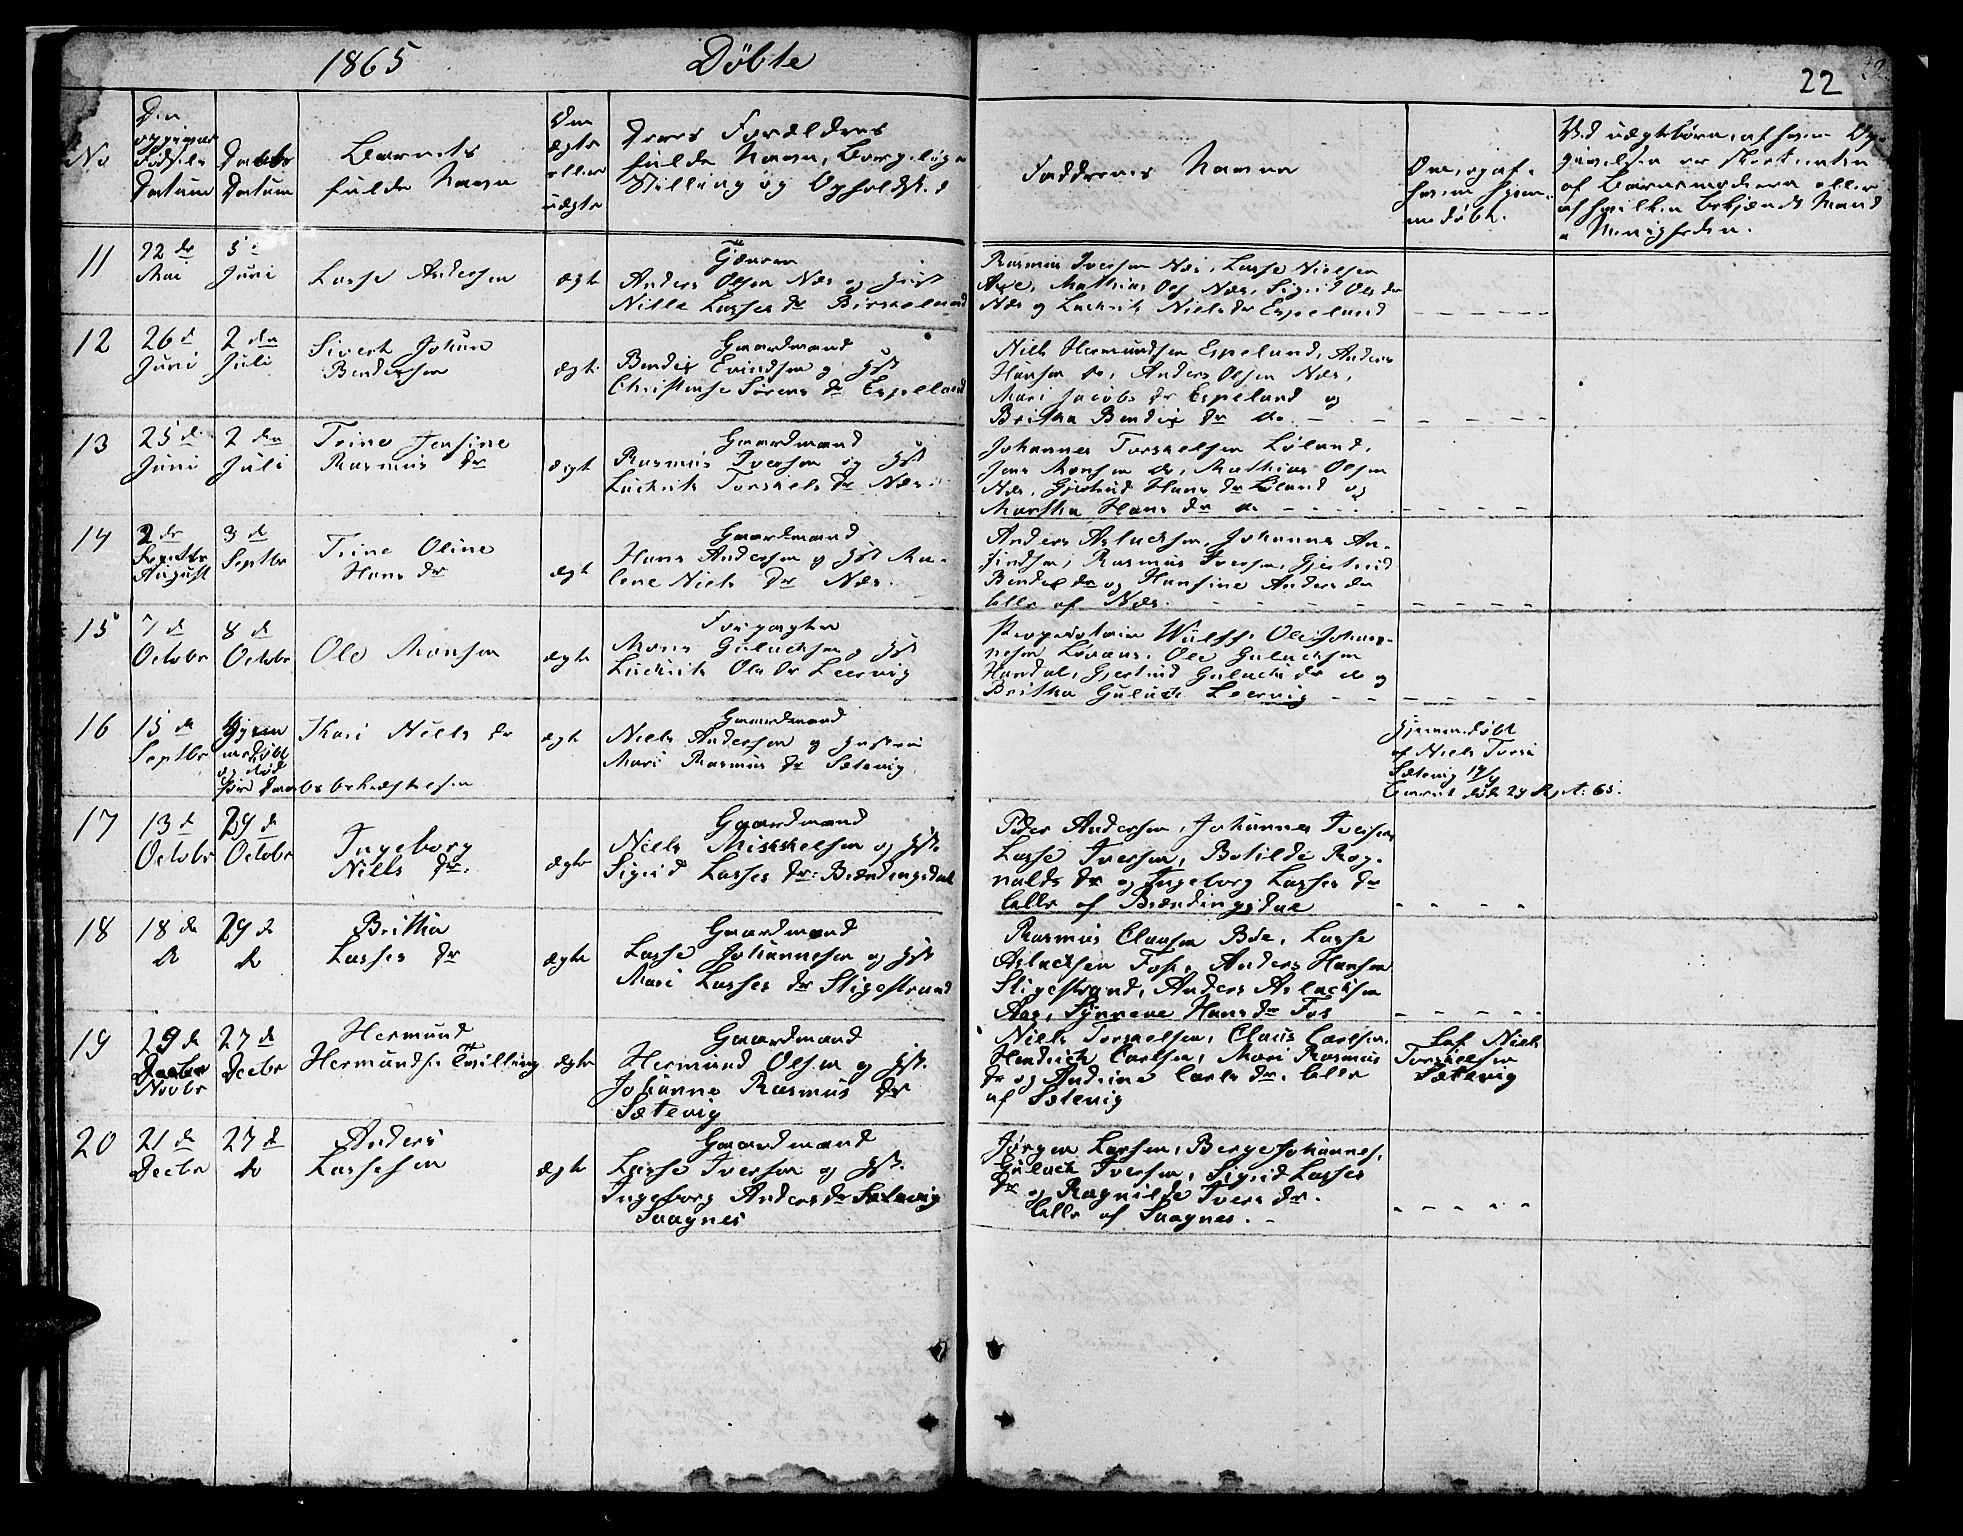 1865 Döbte
22
No
Den
opgivne
Fødsels
Datum
Daabs
Datum
Barnets
fulde Navn
Om
ægte
eller
uægte
Deres Forældres
fulde Navn, Borgelige
Stilling og Opholdsted
Faddrenes Navne
Om, og af
hvem hjem-
medöbt.
Ved uægtebörn, af hvem Op-
givelsen er skeet enten
af Barnemoderen eller
af hvilken bekjendt Mand
i Menigheden.
11
22 de
Mai
5 d
Juni
Lasse Andersen
ægte
Tjænere
Anders Olsen Næs og Hust
Nille Lasses Dr Birkeland
Rasmus Iversen Næs, Lasse Nielsen
Aase, Mathias Ols Næs, Sigrid Ols dr
Næs og Ludvik Niels dr Espeland
12
26 d
Juni
2 den
Juli
Sivert Johan
Bendixsen
ægt.
Gaardmand
Bendix Evindsen og Hst
Christense Sörens Dr Espeland
Niels Hermundsen Espeland, Anders
Hansen do, Anders Olsen Næs,
Mari Jacobs Dr Espeland og
Britha Bendix Dr do.
13
25 d
Juni
2 den
Juli
Trine Josine
Rasmus Dr
ægt
Gaardmand
Rasmus Iversen og Hst
Ludvik Torskels Dr Næs
Johannes Torskelsen Löland,
Jens Monsen do, Mathias Olsen
Næs, Gjertrud Hans Dr Löland og
Martha Hans Dr do
14
2 dr
Septbr
August
3 d
Septbr
Trine Oline
Hans Dr
ægt
Gaardmand
Hans Andersen og Hst Ma-
lene Niels Dr Næs.
Anders Aslachsen, Johannes An-
findsen, Rasmus Iversen, Gjertrud
Bendix dr og Hansine Anders dr
alle af Næs.
15
7 d
Octobr
8 d
Octobr
Ole Monsen
ægte
Forpagter
Mons Gulachsen og Hst
Ludvik Ols Dr Leervig
Propriotair Wulff, Ole Johan-
nesen Lövaas, Ole Gulachsen
Handal, Gjertrud Gulachs dr do og
Britha Gulach Leervig
16
15 d
Septbr
Hjem
medöbt
og död
före Daabs bekræftelsen
Kari Niels dr
ægte
Gaardmand
Niels Andersen og Hustrue
Mari Rasmus Dr Sætevig
Hjemmedöbt
af Niels Torsk
Sætevig 17/9
Barnet död 24 Sept. 65.
17
13 d
Octobr
29 d
Octobr
Ingeborg
Niels Dr.
ægte
Gaardmand
Niels Mikkelsen og Hst.
Sigrid Lasses Dr: Brændingsdal
Peder Andersen, Johannes Iversen,
Lasse Iversen, Botilde Rag-
nalds Dr og Ingeborg Lasses Dr
alle af Brændingsdal
18
18 d
do
29 d
do
Britha
Lasses Dr
ægte
Gaardmand
Lasse Johannesen og Hst
Mari Lasses Dr Stigestrand
Rasmus Clausen Böe, Lasse
Aslachsen Fos, Anders Hansen
Stigestrand, Anders Aslachsen
Aas, Synneve Hans Dr Fos
19
29 d
Decbr
Novbr
27 d
Decbr
Hermund
Hermundsen Tvilling
ægte
Gaardmand
Hermund Olsen og Hst.
Johanne Rasmus Dr
Sætevig
Niels Torskelsen, Claus Carlsen,
Hendrich Carlsen, Mari Rasmus
Dr og Andrine Carls Dr. alle
af Sætevig
af Niels
Torskelsen
Sætevig
20
21 d
Decbr
27 d
do
Anders
Lassesen
ægte
Gaardmand
Lasse Iversen og Hst.
Ingeborg Anders Dr Sætevig
Saagnes
Jörgen Larsen, Berge Johannes,
Gulach Iversen, Sigrid Lasses
Dr og Ragnilde Ivers Dr.
alle af Saagnes.